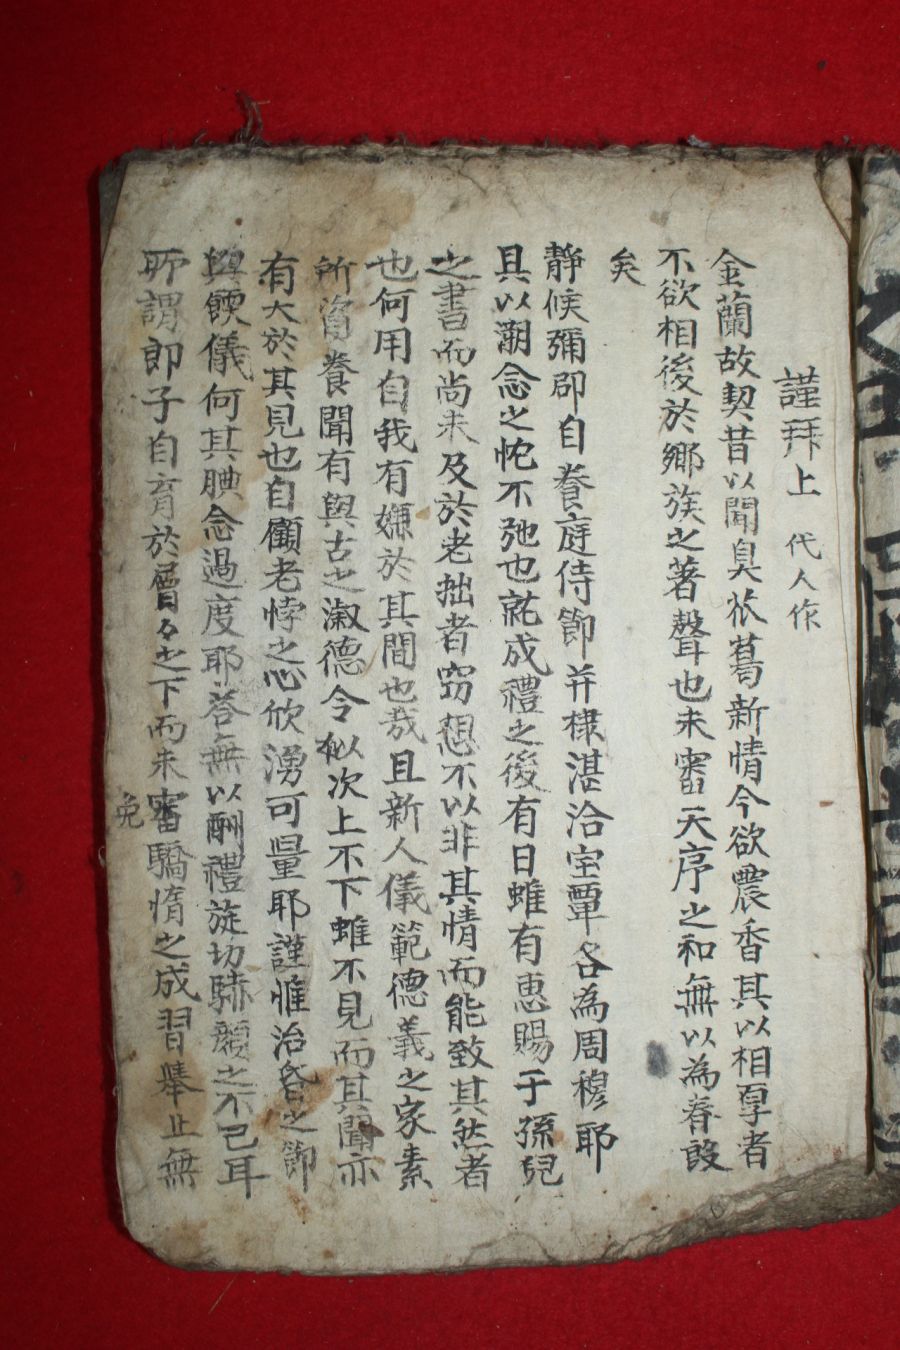 謹拜上 代人作
金蘭故契昔以聞臭衣葛新情今欲震香其以相厚者
不欲相後於鄉族之著聲也未審天序之和無以為眷段
矣
靜候彌郡自養庭侍節并棣湛洽宝覃各為周穆耶
具以溯念之忱不弛也就成禮之後有日雖有惠賜于孫兒
之書而尚未及於老拙者窃想不以非其情而能致其然者
也何用自我有嫌於其間也哉且新人儀範德義之家素
所資養聞有與古之淑德令似次上不下雖不見而其聞亦
有大於其見也自顧老悖之心欣湧可量耶謹惟治昏之節
與饋儀何其腆念過度耶答無以酬禮旋切騂顏之不已耳
所謂郎子自育於層々之下而未審驕惰之成習舉止無
免